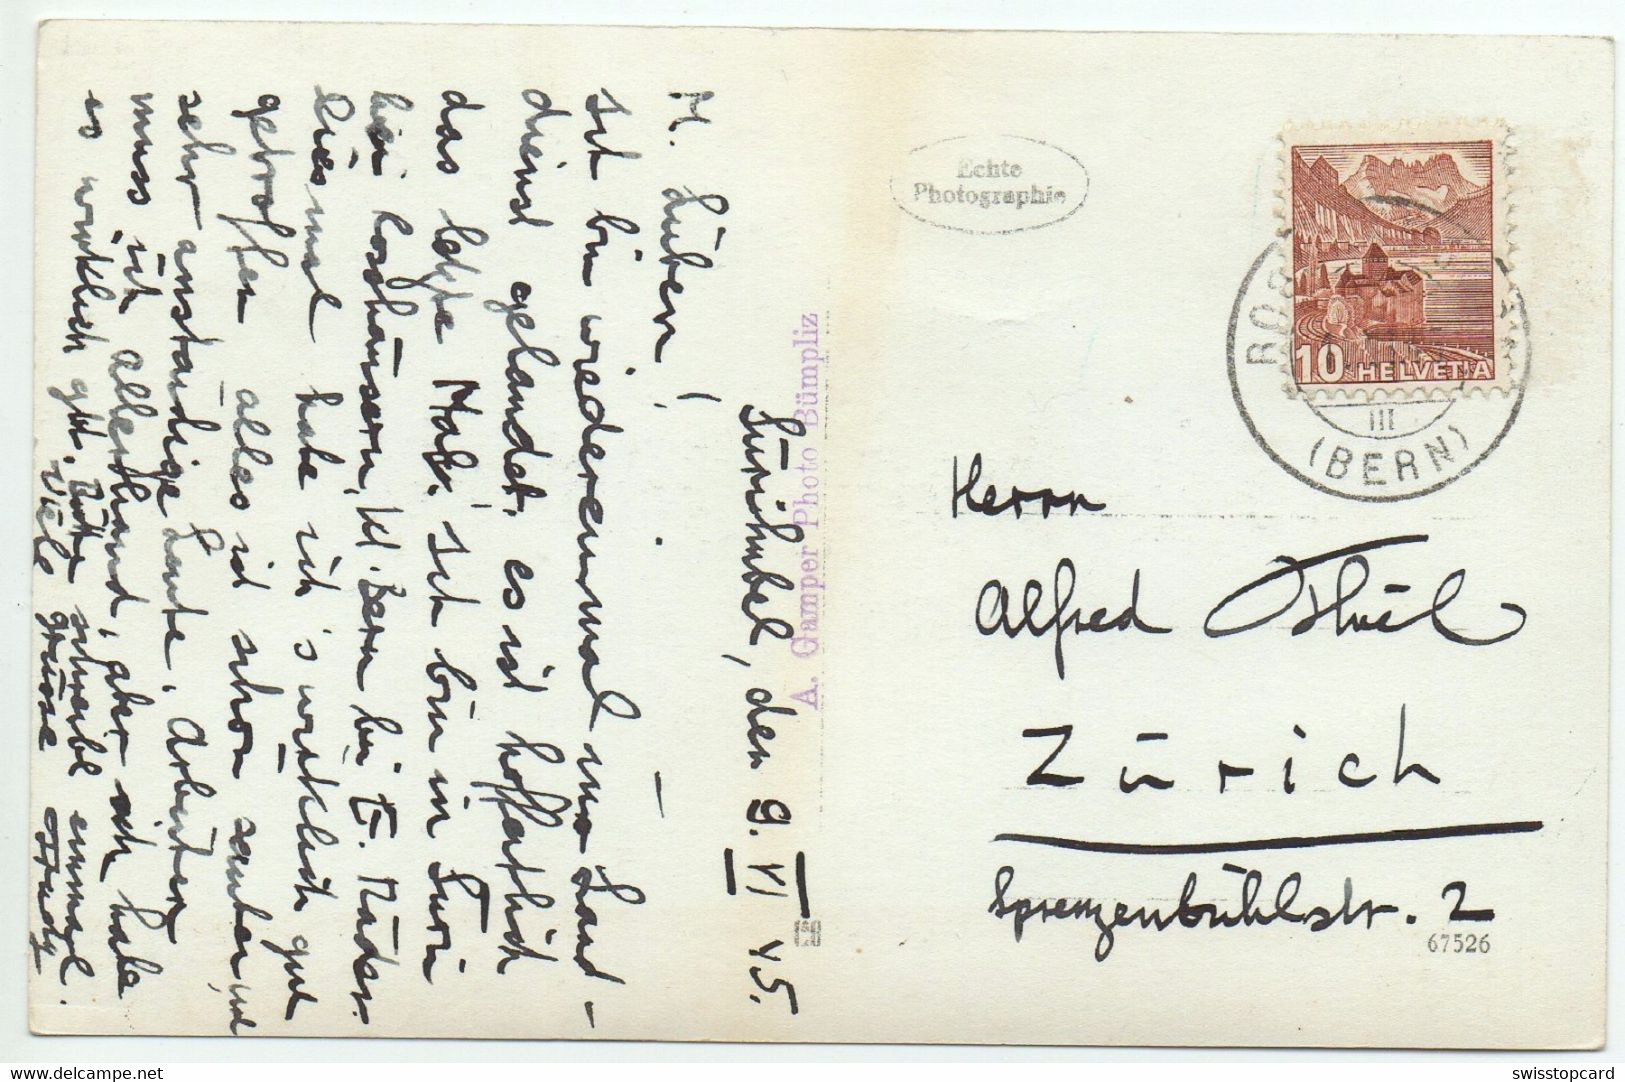 Süribubel, den 9. VI 45.
M. Lieben!
Ich bin wiedereinmal ins Land-
dienst gelandet, es ist hoffentlich
das letzte Mal. Ich bin in Süri
bei Rosshäusern, Kt. Bern bei E. Mäder.
Diesmal habe ich's wirklich gut
getroffen alles ist schon sauber, und
sehr anständige Leute. Arbeiten
muss ich allerhand, aber ich habe
es wirklich gut. Bitte schreibt einmal.
Viele grüsse
A. Gamper Photo Bümpliz
Echte
Photographie
10 HELVETIA
III
(BERN)
Herrn
Alfred
Zürich
Sprenzenbühlstr. 2
67526
swisstopcard
delcampe.net